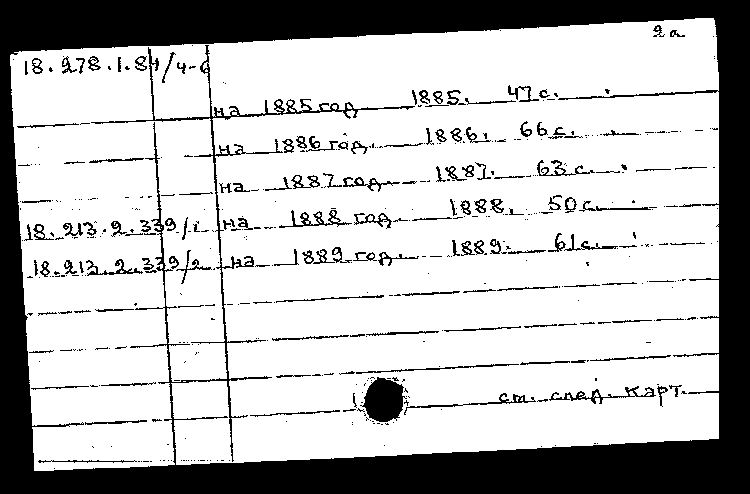 2а
18.278.1.84/4-6
на 1885 год 1885. 47 с.
на 1886 год. 1886. 66 с.
на 1887 год. 1887. 63 с.
18.213.2.339/1 на 1888 год. 1888. 50 с.
18.213.2.339/2 на 1889 год. 1889. 61 с.
см. след. карт.